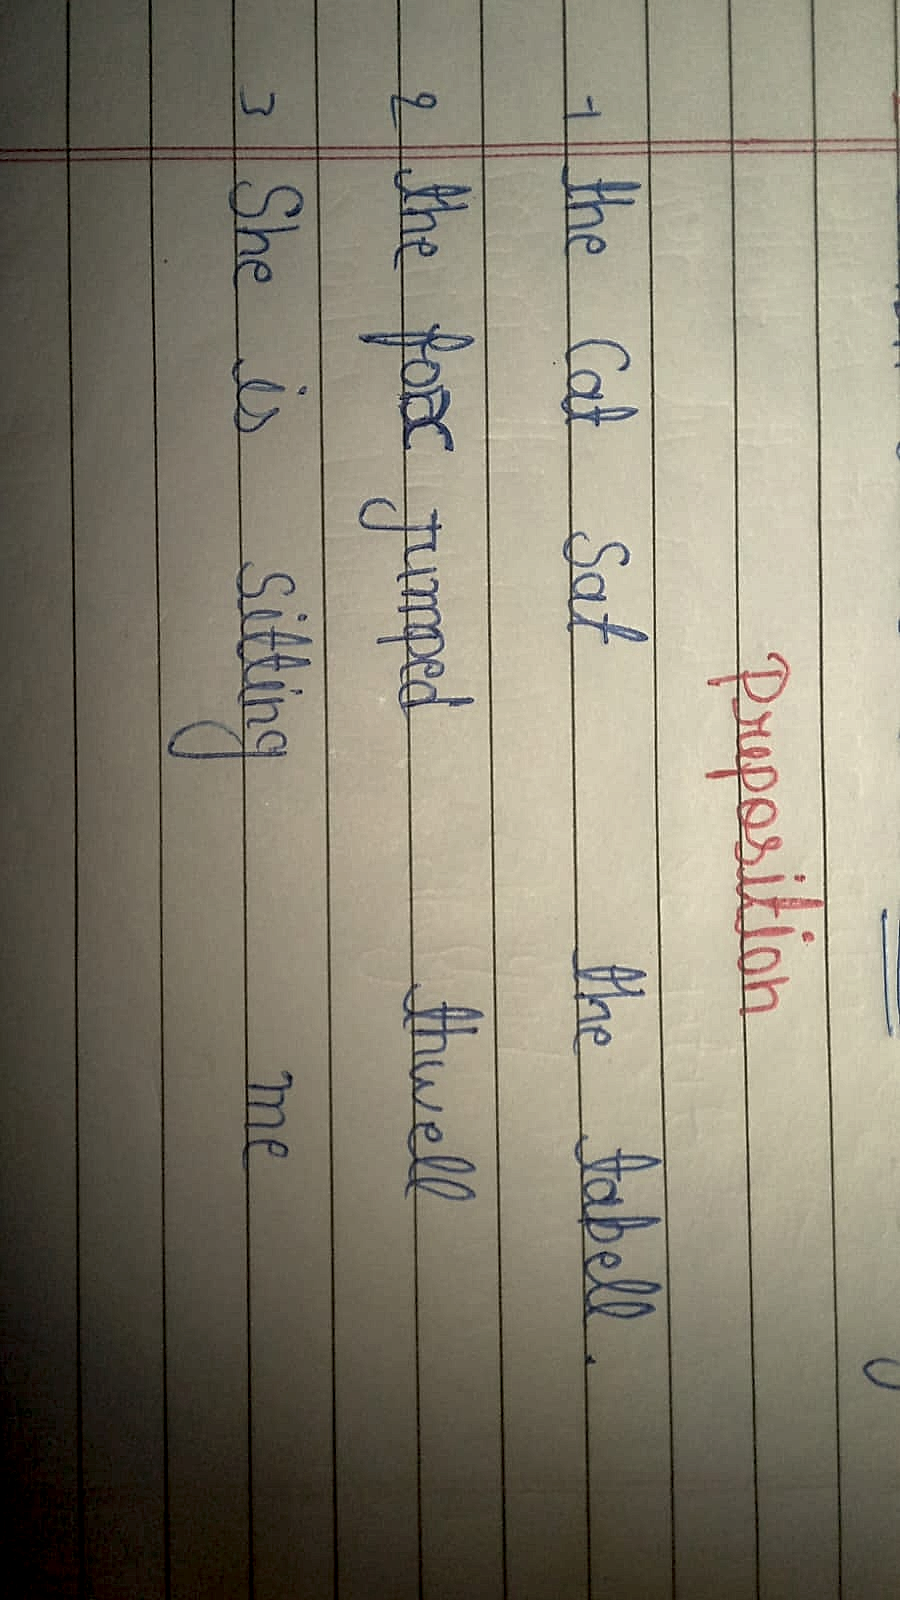 Preposition
1 the Cat Sat the tabell.
2 the fox jumped thwell
3 She is sitting me